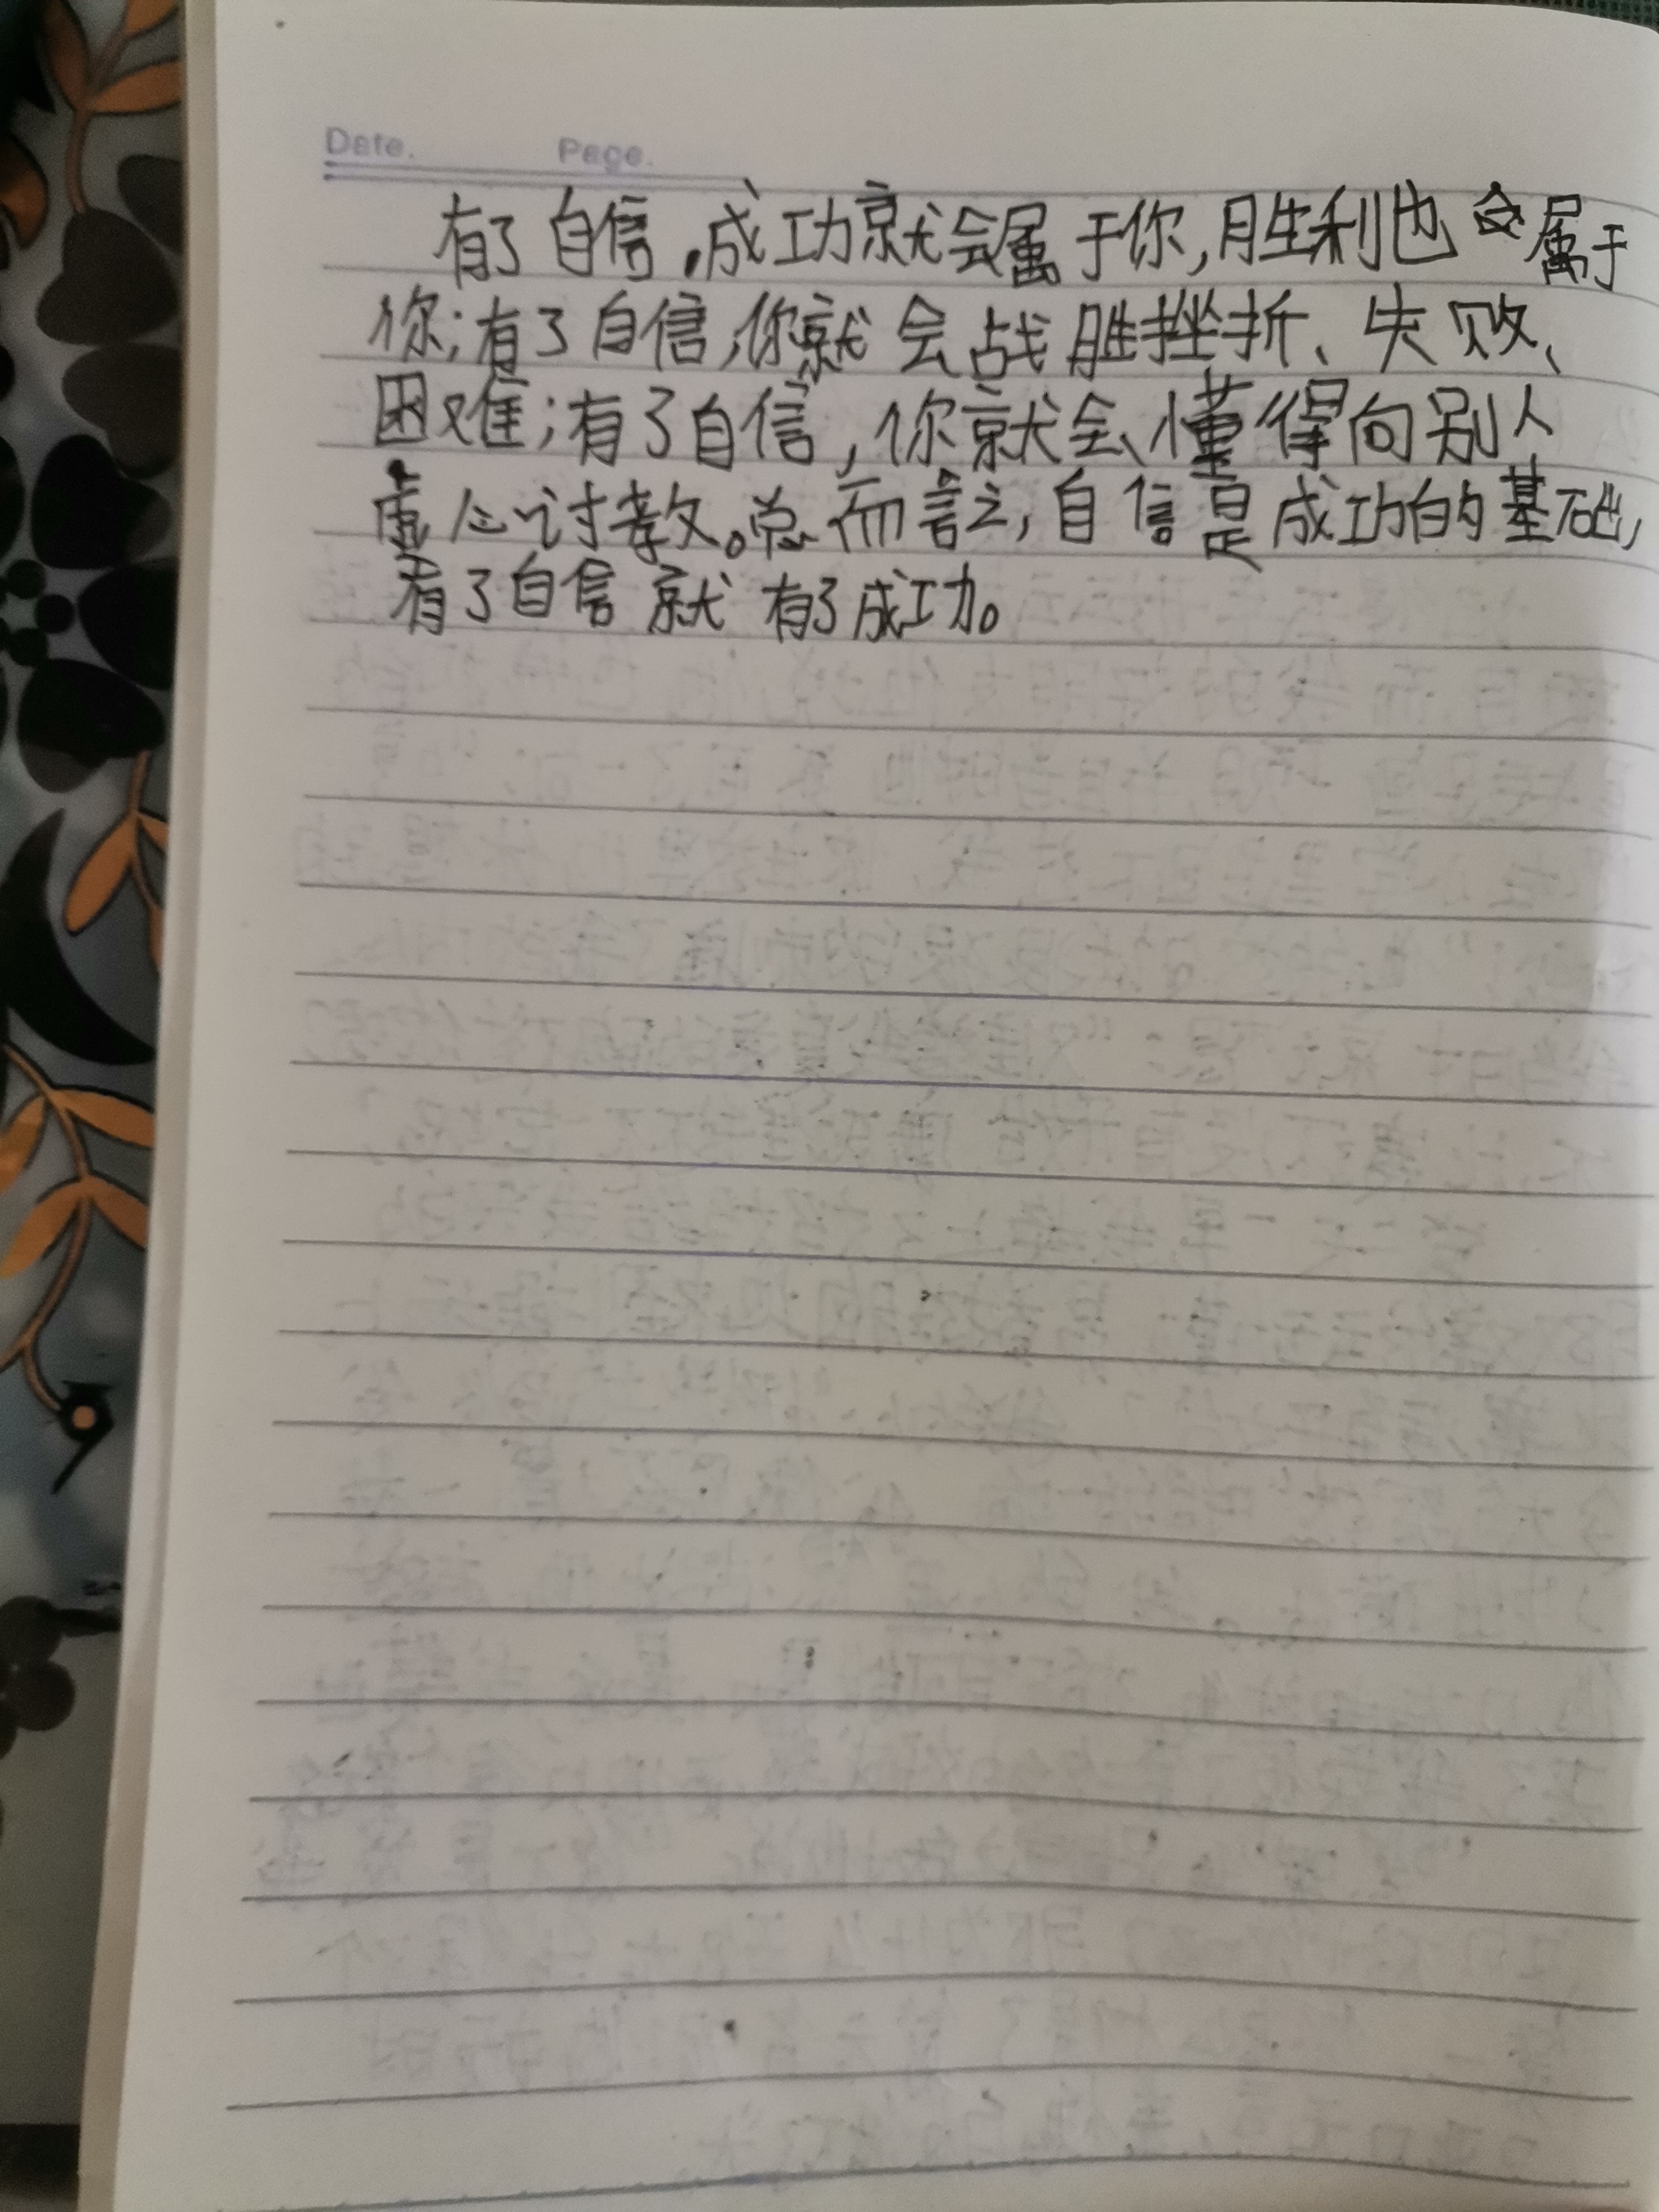 Date. Page.
有了自信,成功就会属于你,胜利也会属于
你;有了自信,你就会战胜挫折、失败、
困难;有了自信,你就会懂得向别人
虚心讨教。总而言之,自信是成功的基础,
有了自信就有了成功。